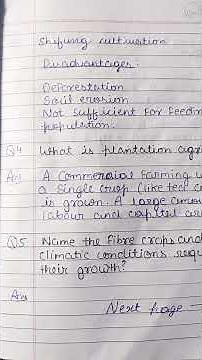 Shifung cultivation
Disadvantages.
Deforestation
Soil erosion
Not sufficient for feedin
population.
Q4 What is plantation agri
Ans A Commercial farming w
a single crop (like tea c
is grown. A large amou
labour and capital are
Q5 Name the fibre crops and
climatic conditions requ
their growth?
Ans
Next page